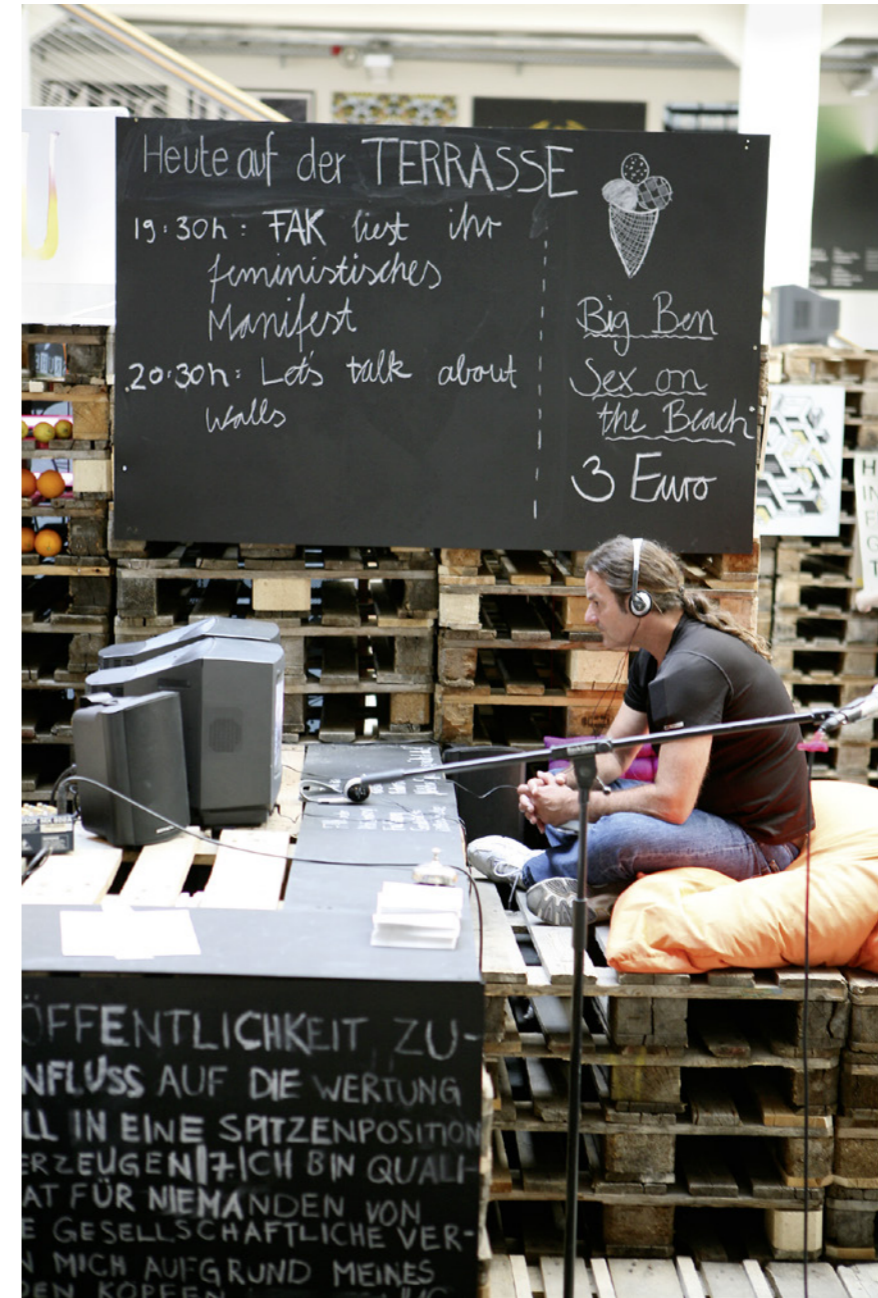 Heute auf der TERRASSE
19:30h: FAK liest ihr
feministisches
Manifest
20:30h: Let's talk about
walls
Big Ben
Sex on
the Beach
3 Euro
ÖFFENTLICHKEIT ZU-
NFLUSS AUF DIE WERTUNG
LL IN EINE SPITZENPOSITION
ERZEUGEN|7|ICH BIN QUALI-
AT FÜR NIEMANDEN VON
E GESELLSCHAFTLICHE VER-
N MICH AUFGRUND MEINES
DEN KOPFEN